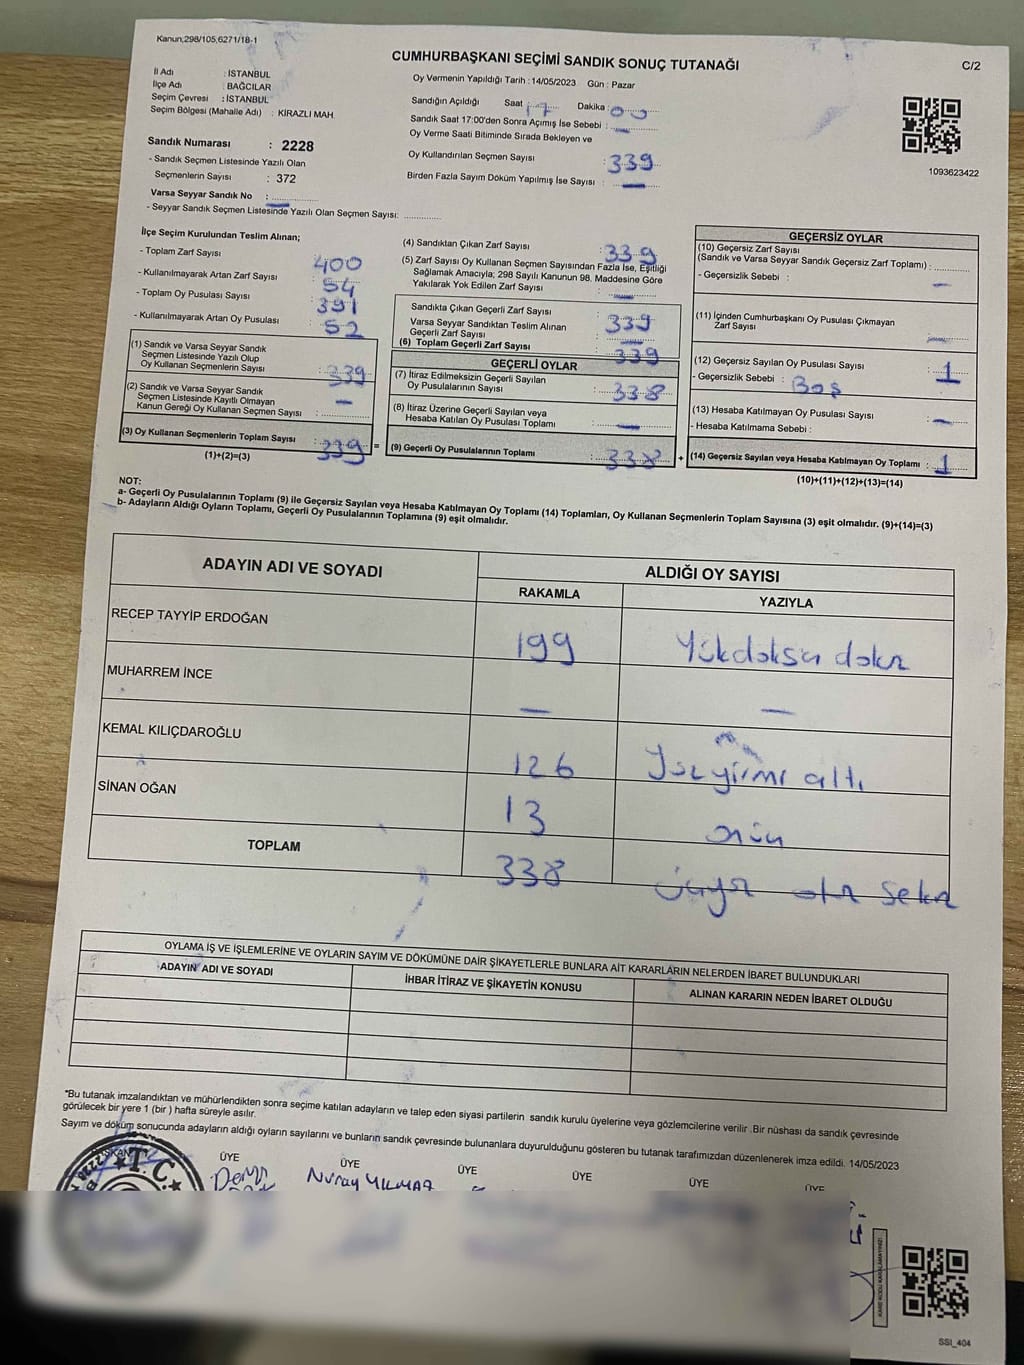 Kanun;298/105,6271/18-1
CUMHURBAŞKANI SEÇİMİ SANDIK SONUÇ TUTANAĞI
C/2
İl Adı : İSTANBUL
İlçe Adı : BAĞCILAR
Seçim Çevresi : İSTANBUL
Seçim Bölgesi (Mahalle Adı) : KİRAZLI MAH.
Oy Vermenin Yapıldığı Tarih : 14/05/2023 Gün : Pazar
Sandığın Açıldığı Saat : 17 Dakika : 00
Sandık Saat 17:00'den Sonra Açımış İse Sebebi : —
Oy Verme Saati Bitiminde Sırada Bekleyen ve
Oy Kullandırılan Seçmen Sayısı : 339
Birden Fazla Sayım Döküm Yapılmış İse Sayısı : —
1093623422
Sandık Numarası : 2228
- Sandık Seçmen Listesinde Yazılı Olan
Seçmenlerin Sayısı : 372
Varsa Seyyar Sandık No : —
- Seyyar Sandık Seçmen Listesinde Yazılı Olan Seçmen Sayısı: ............
İlçe Seçim Kurulundan Teslim Alınan;
- Toplam Zarf Sayısı 400
- Kullanılmayarak Artan Zarf Sayısı : 54
- Toplam Oy Pusulası Sayısı 391
- Kullanılmayarak Artan Oy Pusulası : 52
(1) Sandık ve Varsa Seyyar Sandık
Seçmen Listesinde Yazılı Olup
Oy Kullanan Seçmenlerin Sayısı : 339
(2) Sandık ve Varsa Seyyar Sandık
Seçmen Listesinde Kayıtlı Olmayan
Kanun Gereği Oy Kullanan Seçmen Sayısı : —
(3) Oy Kullanan Seçmenlerin Toplam Sayısı : 339 =
(1)+(2)=(3)
(4) Sandıktan Çıkan Zarf Sayısı : 339
(5) Zarf Sayısı Oy Kullanan Seçmen Sayısından Fazla İse, Eşitliği
Sağlamak Amacıyla; 298 Sayılı Kanunun 98. Maddesine Göre
Yakılarak Yok Edilen Zarf Sayısı : —
Sandıkta Çıkan Geçerli Zarf Sayısı : 339
Varsa Seyyar Sandıktan Teslim Alınan
Geçerli Zarf Sayısı : —
(6) Toplam Geçerli Zarf Sayısı : 339
GEÇERLİ OYLAR
(7) İtiraz Edilmeksizin Geçerli Sayılan
Oy Pusulalarının Sayısı : 338
(8) İtiraz Üzerine Geçerli Sayılan veya
Hesaba Katılan Oy Pusulası Toplamı : —
(9) Geçerli Oy Pusulalarının Toplamı : 338 +
GEÇERSİZ OYLAR
(10) Geçersiz Zarf Sayısı
(Sandık ve Varsa Seyyar Sandık Geçersiz Zarf Toplamı) : ............
- Geçersizlik Sebebi : —
(11) İçinden Cumhurbaşkanı Oy Pusulası Çıkmayan
Zarf Sayısı : —
(12) Geçersiz Sayılan Oy Pusulası Sayısı : 1
- Geçersizlik Sebebi : Boş
(13) Hesaba Katılmayan Oy Pusulası Sayısı : —
- Hesaba Katılmama Sebebi :
(14) Geçersiz Sayılan veya Hesaba Katılmayan Oy Toplamı : 1
(10)+(11)+(12)+(13)=(14)
NOT:
a- Geçerli Oy Pusulalarının Toplamı (9) ile Geçersiz Sayılan veya Hesaba Katılmayan Oy Toplamı (14) Toplamları, Oy Kullanan Seçmenlerin Toplam Sayısına (3) eşit olmalıdır. (9)+(14)=(3)
b- Adayların Aldığı Oyların Toplamı, Geçerli Oy Pusulalarının Toplamına (9) eşit olmalıdır.
ADAYIN ADI VE SOYADI
ALDIĞI OY SAYISI
RAKAMLA YAZIYLA
RECEP TAYYİP ERDOĞAN 199
MUHARREM İNCE — —
KEMAL KILIÇDAROĞLU 126 Yüzyirmi altı
SİNAN OĞAN 13 onüç
TOPLAM 338 üçyüz otuz sekiz
OYLAMA İŞ VE İŞLEMLERİNE VE OYLARIN SAYIM VE DÖKÜMÜNE DAİR ŞİKAYETLERLE BUNLARA AİT KARARLARIN NELERDEN İBARET BULUNDUKLARI
ADAYIN ADI VE SOYADI İHBAR İTİRAZ VE ŞİKAYETİN KONUSU ALINAN KARARIN NEDEN İBARET OLDUĞU
*Bu tutanak imzalandıktan ve mühürlendikten sonra seçime katılan adayların ve talep eden siyasi partilerin sandık kurulu üyelerine veya gözlemcilerine verilir .Bir nüshası da sandık çevresinde
görülecek bir yere 1 (bir ) hafta süreyle asılır.
Sayım ve döküm sonucunda adayların aldığı oyların sayılarını ve bunların sandık çevresinde bulunanlara duyurulduğunu gösteren bu tutanak tarafımızdan düzenlenerek imza edildi. 14/05/2023
BAŞKAN ÜYE ÜYE ÜYE ÜYE ÜYE ÜYE
T.C.
2228
Nuray YILMAZ
SSI_404